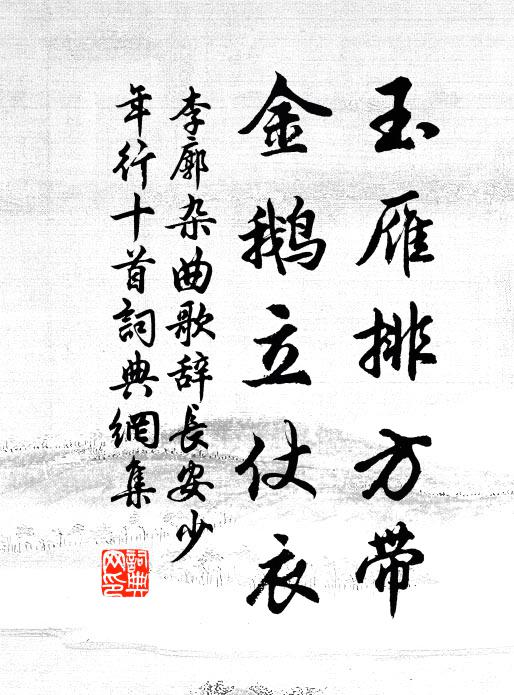 玉雁排方带
金鹅立仗衣
李廓杂曲歌辞長安少
年行十首詞典網集
詞典
网印